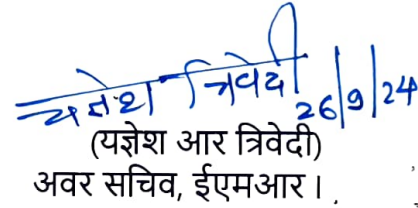 यज्ञेश त्रिवेदी
26/9/24
(यज्ञेश आर त्रिवेदी)
अवर सचिव, ईएमआर।